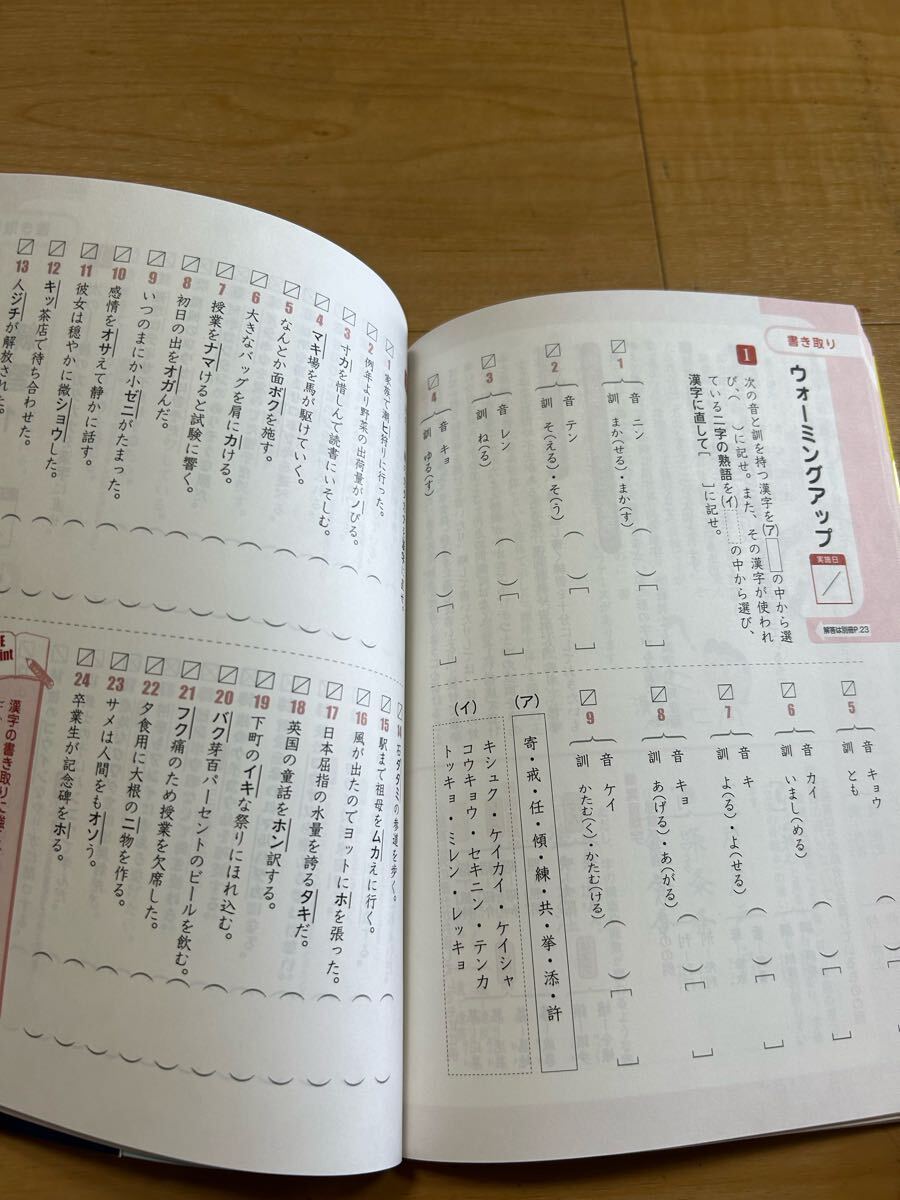 書き取り
ウォーミングアップ
実施日
解答は別冊P.23
1
次の音と訓を持つ漢字を(ア)の中から選
び、( )に記せ。また、その漢字が使われ
ている二字の熟語を(イ)の中から選び、
漢字に直して[ ]に記せ。
1 音 ニン
訓 まか(せる)・まか(す) ( ) [ ]
2 音 テン
訓 そ(える)・そ(う) ( ) [ ]
3 音 レン
訓 ね(る) ( ) [ ]
4 音 キョ
訓 ゆる(す) ( ) [ ]
5 音 キョウ
訓 とも ( ) [ ]
6 音 カイ
訓 いまし(める) ( ) [ ]
7 音 キ
訓 よ(る)・よ(せる) ( ) [ ]
8 音 キョ
訓 あ(げる)・あ(がる) ( ) [ ]
9 音 ケイ
訓 かたむ(く)・かたむ(ける) ( ) [ ]
(ア)
寄・戒・任・傾・練・共・挙・添・許
(イ)
キシュク・ケイカイ・ケイシャ
コウキョウ・セキニン・テンカ
トッキョ・ミレン・レッキョ
1 家族で潮ヒ狩りに行った。( )
2 例年より野菜の出荷量がノびる。( )
3 寸カを惜しんで読書にいそしむ。( )
4 マキ場を馬が駆けていく。( )
5 なんとか面ボクを施す。( )
6 大きなバッグを肩にカける。( )
7 授業をナマけると試験に響く。( )
8 初日の出をオガんだ。( )
9 いつのまにか小ゼニがたまった。( )
10 感情をオサえて静かに話す。( )
11 彼女は穏やかに微ショウした。( )
12 キッ茶店で待ち合わせた。( )
13 人ジチが解放された。( )
14 石ダタミの歩道を歩く。( )
15 駅まで祖母をムカえに行く。( )
16 風が出たのでヨットにホを張った。( )
17 日本屈指の水量を誇るタキだ。( )
18 英国の童話をホン訳する。( )
19 下町のイキな祭りにほれ込む。( )
20 バク芽百パーセントのビールを飲む。( )
21 フク痛のため授業を欠席した。( )
22 夕食用に大根のニ物を作る。( )
23 サメは人間をもオソう。( )
24 卒業生が記念碑をホる。( )
int
漢字の書き取りに